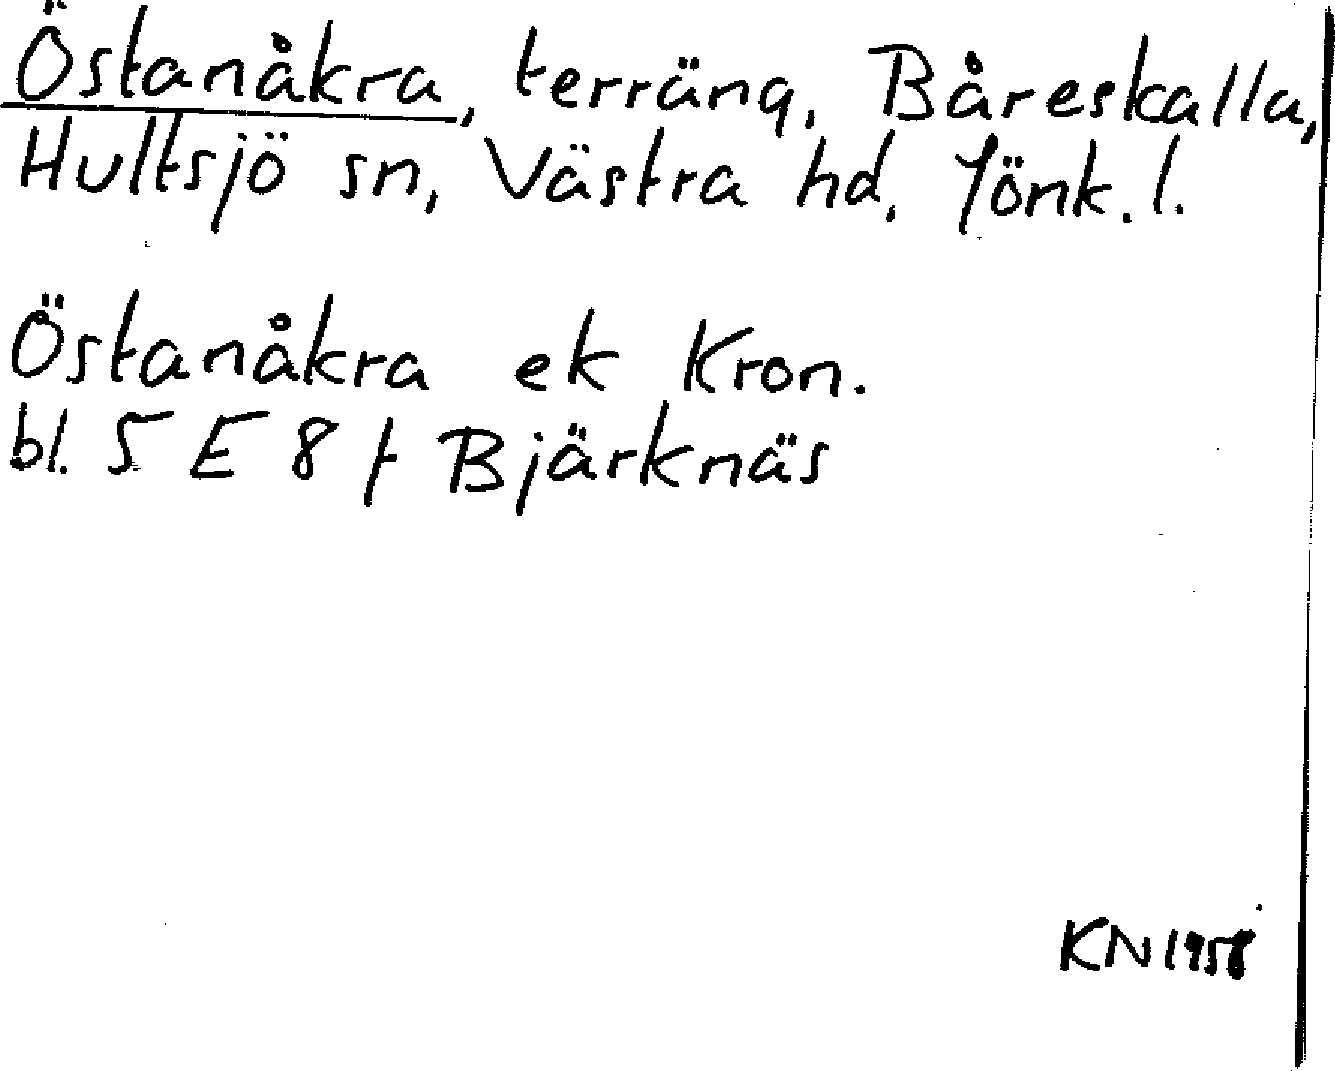 Östanåkra, terräng, Båreskalla,
Hultsjö sn, Västra hd, Jönk. l.
Östanåkra ek Kron.
bl. 5 E 8 f Bjärknäs
KN 1958